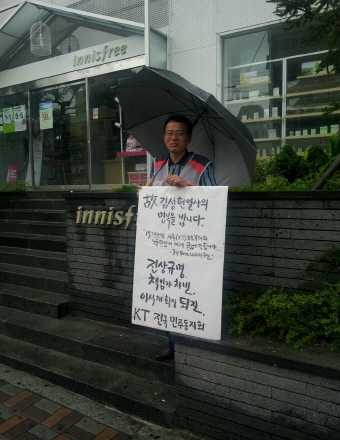 innisfree
innisf
故 김성현열사의
명복을 빕니다.
진상규명
책임자 처벌
이석채 회장 퇴진.
KT 전국 민주동지회